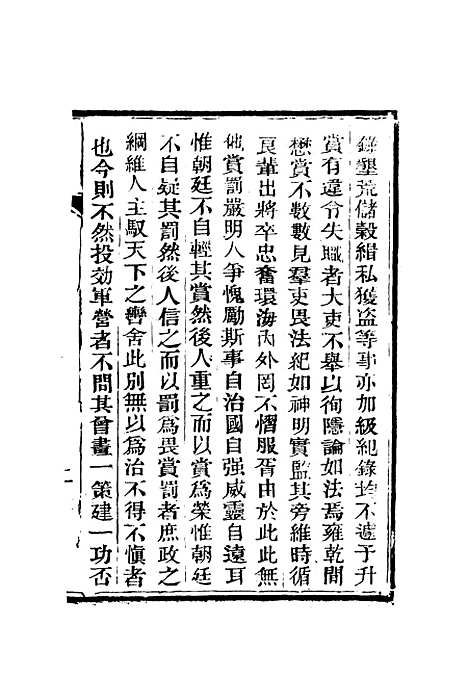 錄墾荒儲穀緝私獲盜等事亦加級紀錄均不遽予升
賞有違令失職者大吏不舉以徇隱論如法焉雍乾間
懋賞不數數見羣吏畏法紀如神明實監其旁維時循
良輩出將卒忠奮環海內外罔不慴服胥由於此此無
他賞罰嚴明人爭愧勵斯事自治國自强威靈自遠耳
惟朝廷不自輕其賞然後人重之而以賞爲榮惟朝廷
不自疑其罰然後人信之而以罰爲畏賞罰者庶政之
綱維人主馭天下之轡舍此別無以爲治不得不愼者
也今則不然投効軍營者不問其曾畫一策建一功否